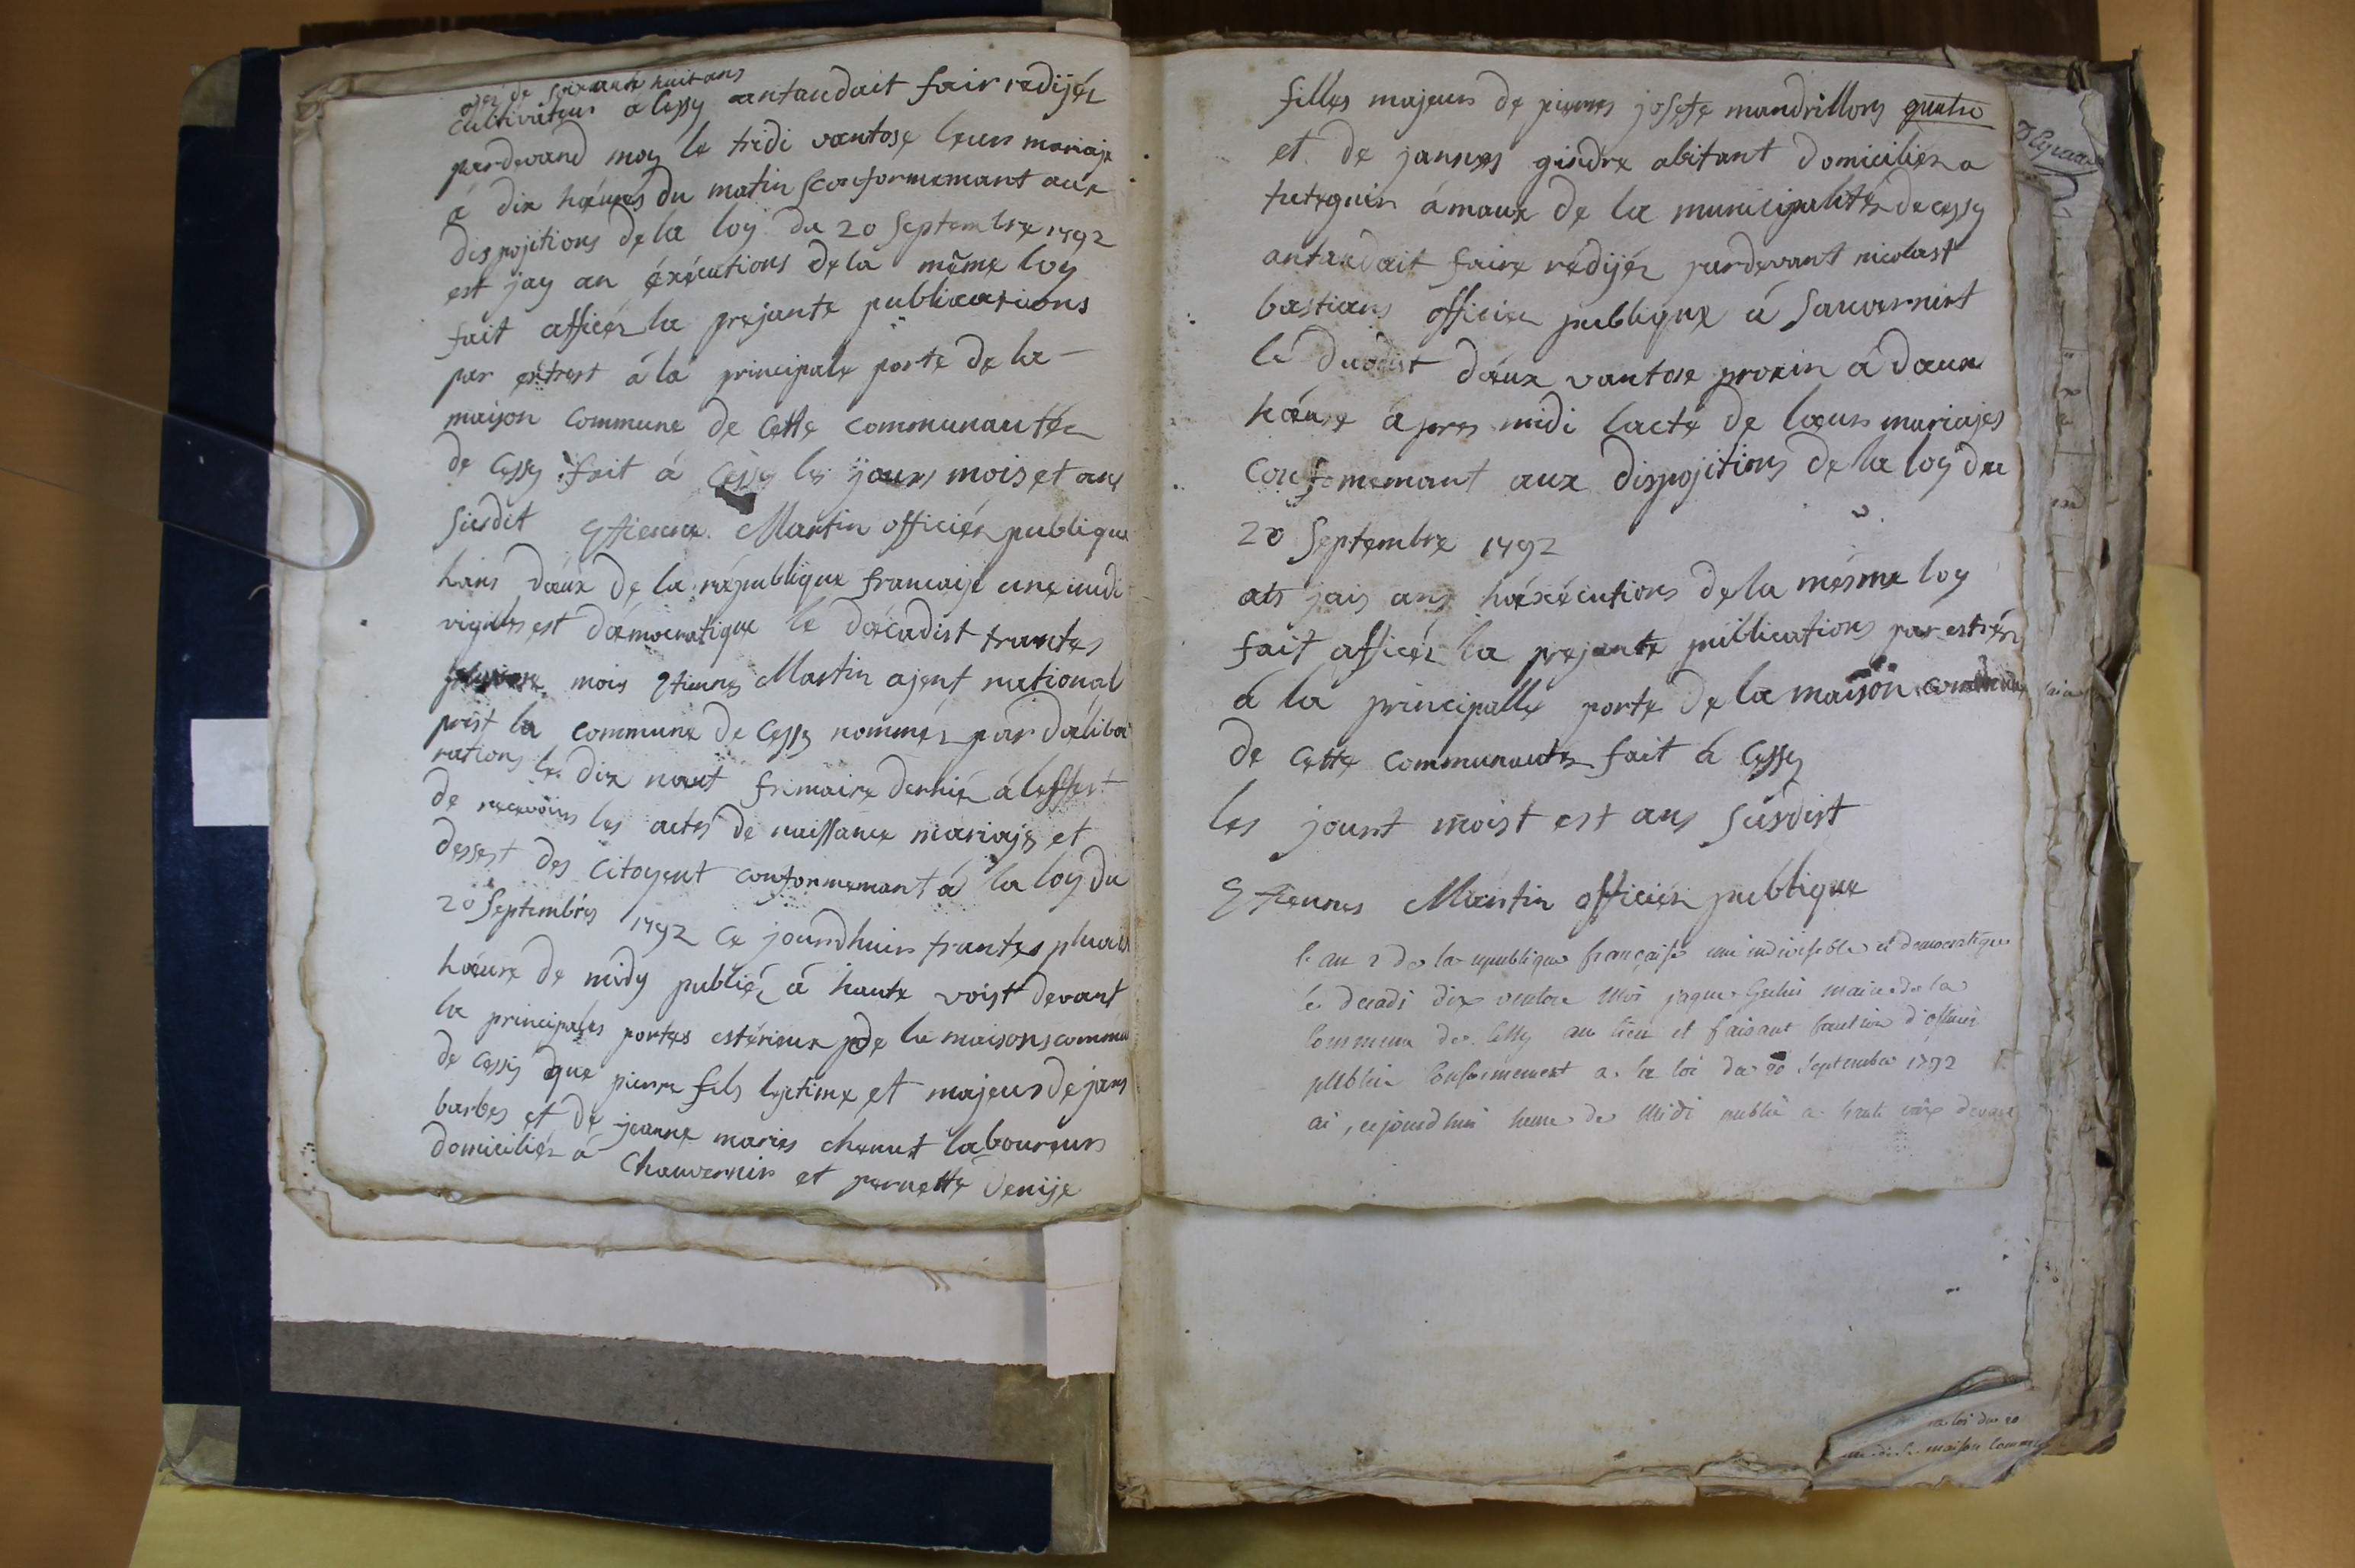 de soixante huit ans
Cultivateur a Cessy antandait fair redijér
pardevand moy le tridi vantose leur mariaje
á dix hæures du matin Conformemant aux
dispojitions de la loy du 20 Septembre 1792
est jay an éxécutions de la même loy
fait afficér la prejante publications
par extrest á la principale porte de la
maison commune de Cette communautér
de Cessy fait á Cessy les jours mois et ans
susdit Etienne Martin officiér publique
hans dæux de la républiqux francaije une indi
est dæmocratique le dæcadist trantes
mois Etiennes Martin ajent national
la commune de Cessy nommér par dælibæ
rations le dix nœuf frimaire derniér á leffest
de recevoirs les actes de naissance mariaje et
dessest des Citoyent conformemant á la loy du
20 Septembres 1792 Ce jourdhuir trantes
hæure de midy publiér á haute voist devant
la principales portes estérieur de la maisons commu
de Cessy que pierre fils lejetime et majeur de jans
barbes et de jeanne maries chenut laboureurs
domiciliér á Chauvernir et pernette denije
filles majeur de pierres josete mandrillons
et de jannes gindre abitant domiciliér a
tuteguir ámaux de la municipalitér de Cessy
antandait faire rédijér pardevant nicolast
bastians officier publique á Sauvernirt
le duodist dæux vantose proxin á dæux
hæure apres midi lacte de læur mariajes
Confomemant aux dispojitions de la loy du
20 Septembre 1792
ats jais ans háxécutions de la mésme loy
fait afficér la prejante publications par estrér
á la principalle porte de la maison commune
de Cette Communauté fait á Cessy
les jourt moist est ans susdist
Etiennes Martin officiér publique
l'an 2 de la republique française une indivisible et democratique
le decadi dix ventose Moi jaques maire de la
Commune de Cessy au lieu et faisant fonction d'officier
publiu Conformement a la loi du 20 Septembre 1792
ai, cejourdhui heure de Midi publié a haute voix devant
la loi du 20
maison Commu